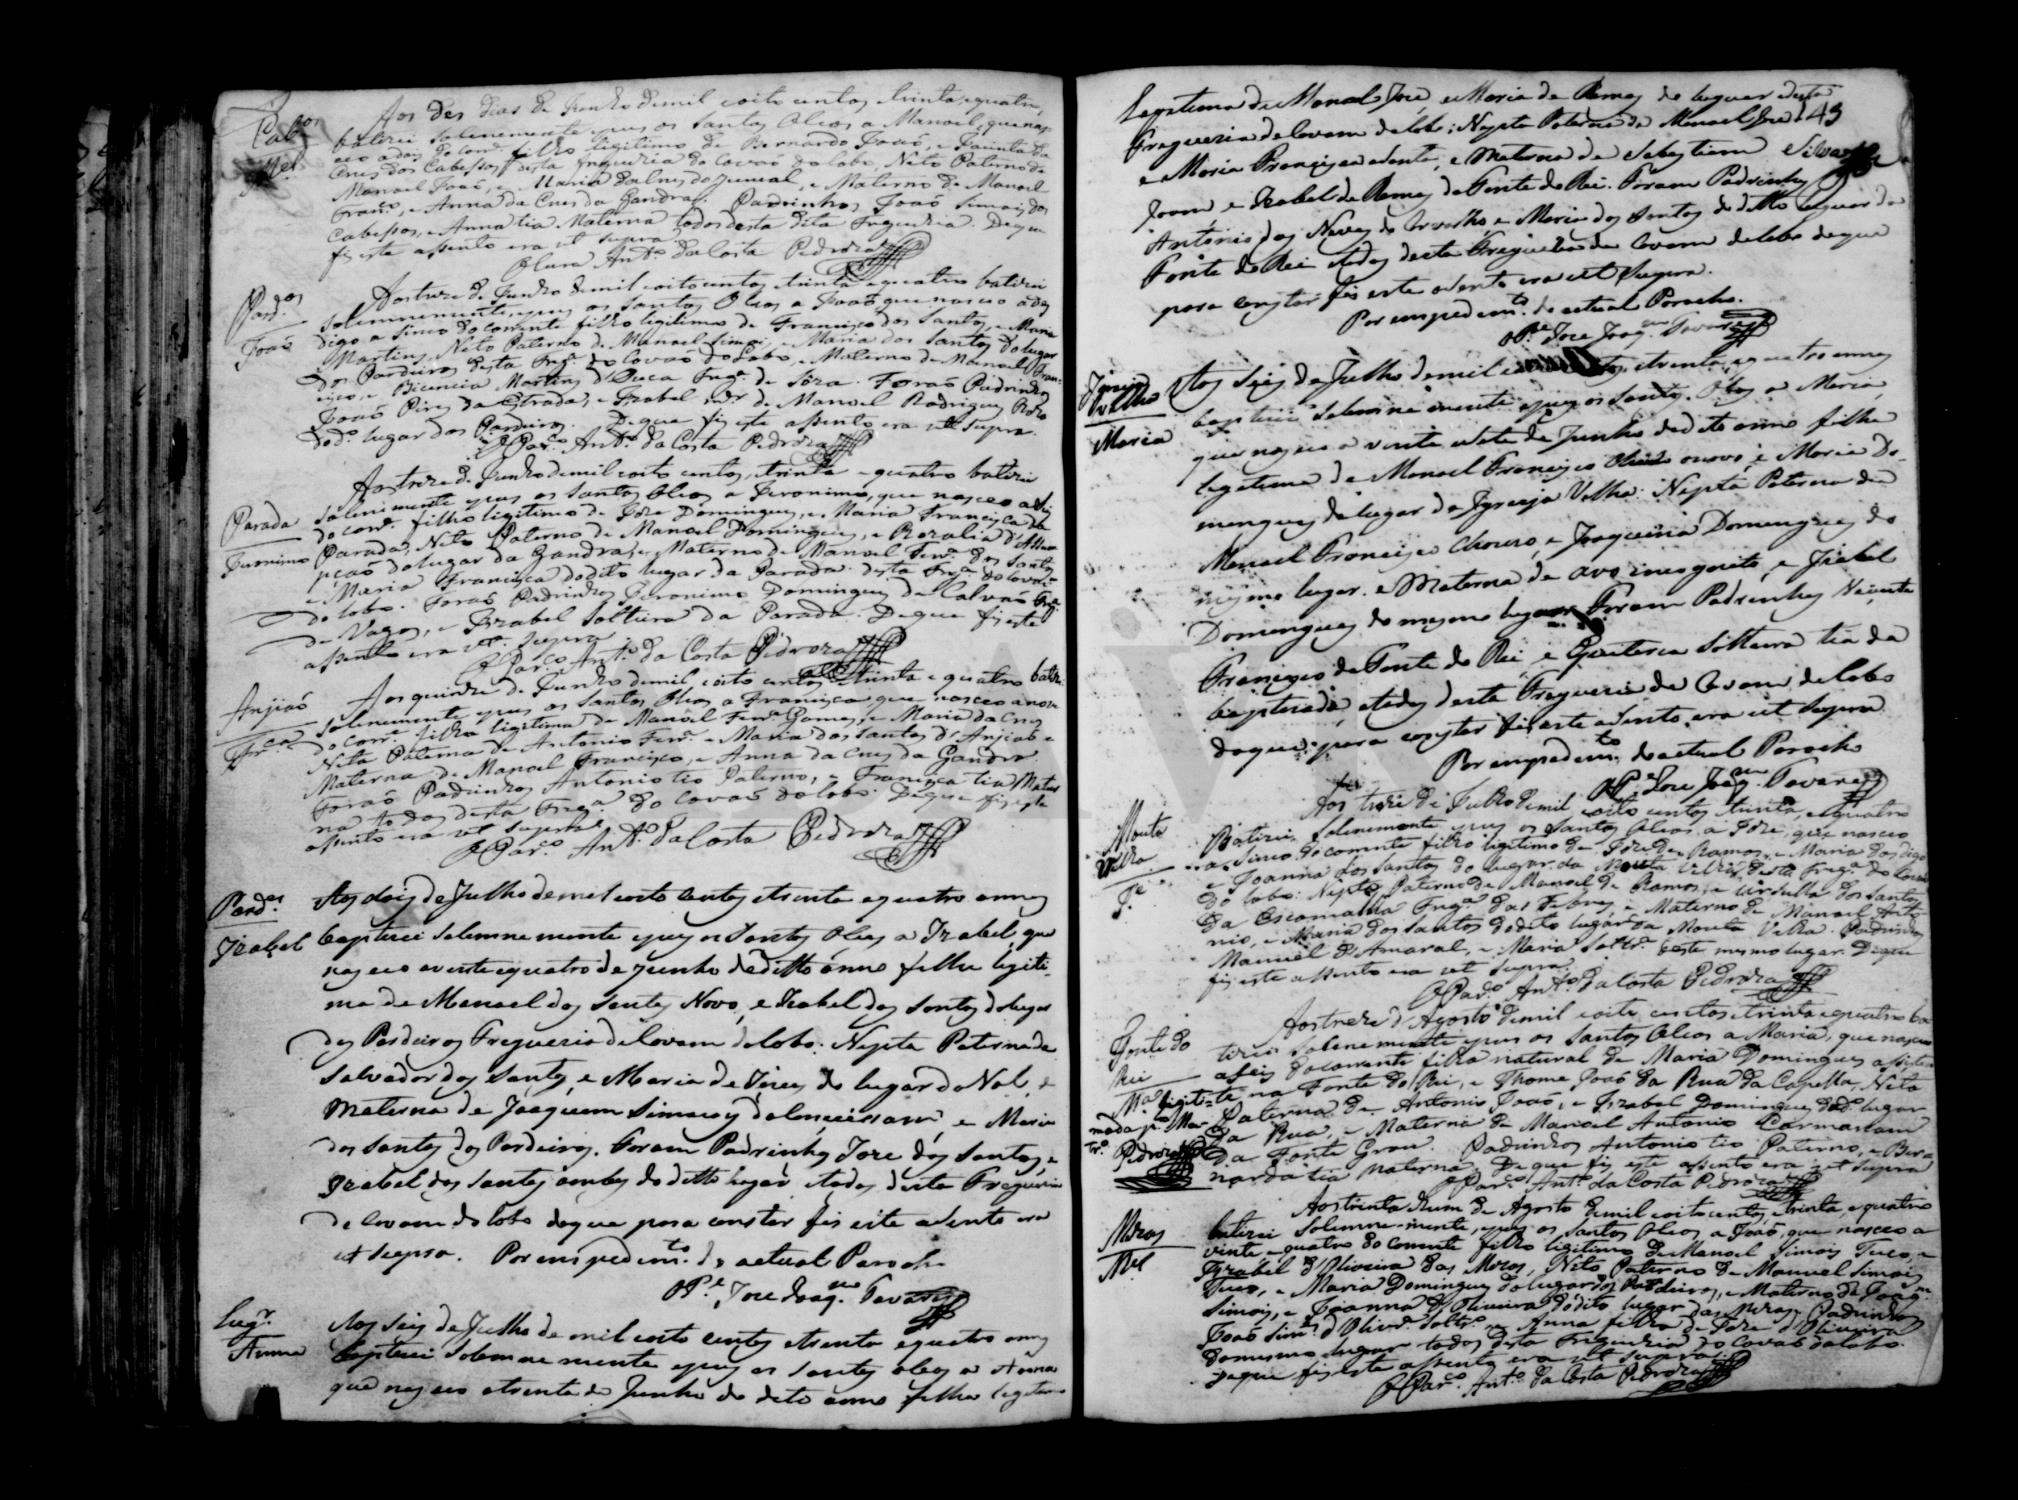 Cab.os
M.el
Aos des dias de Junho de mil e oito centos e trinta, e quatro,
batizei solenemente e pus os Santos Oleos a Manoel, que nas-
ceo a do corr.e filho ligitimo de Bernardo Joaõ, e Jacinta da
Crus dos Cabessos, desta freguezia do Covaõ do Lobo, Neto Paterno de
Manoel Joaõ, e Maria da Crus do Juncal, e Materno de Manoel
Fran.co, e Anna da Crus da Gandra. Padrinhos Joaõ Simois dos
Cabessos, e Anna tia Materna todos desta dita Freguezia. De que
fis este assento era ut supra.
O Cura Ant.o da Costa Pedroza
Pard.os
Joaõ
Aos treze de Junho de mil e oito centos e trinta e quatro batizei
solemnemente, e pus os Santos Oleos a Joaõ que nasceo a des
digo a sinco do corrente filho legitimo de Francisco dos Santos, e Maria
Martins, Neto Paterno de Manoel Simois, e Maria dos Santos do lugar
dos Pardeiros desta Freg.a do Covaõ do Lobo, e Materno de Manoel Fran-
cisco, e Bicencia Martins d'Ouca Freg.a de Sôza. Foraõ Padrinhos
Joaõ Pires da Estrada, e Izabel m.er de Manoel Rodrigues
do d.o lugar dos Pardeiros. De que fis este assento era ut supra.
O Par.o Ant.o da Costa Pedroza
Parada
Jeronimo
Aos treze de Junho de mil e oito centos, e trinta e quatro batizei
solenemente e pus os Santos Oleos a Jeronimo, que nasceo a
do corr.e filho ligitimo de Joze Domingues, e Maria Francisca da
Parada, Neto Paterno de Manoel Domingues, e Rozalia d'Assum-
pçaõ do lugar da Gandra, e Materno de Manoel Fran.co dos Santos
e Maria Francisca do dito lugar da Parada desta Fr.a do Covaõ
do Lobo. Foraõ Padrinhos Jeronimo Domingues de Calvaõ Fr.a
de Vagos, e Izabel Solteira da Parada. De que fis este
assento era ut supra
O Par.o Ant.o da Costa Pedroza
Anjiaõ
Fr.ca
Aos quinze de Junho de mil e oito centos e trinta e quatro batizei
solenemente e pus os Santos Oleos a Francisca que nasceo a nove
do corr.e filha ligitima de Manoel Gomes, e Maria da Crus
Neta Paterna de Antonio e Maria dos Santos d'Anjiaõ e
Materna de Manoel Francisco, e Anna da Crus da Gandra.
Foraõ Padrinhos Antonio tio Paterno, e Francisca tia Mater
na todos desta Freg.a do Covaõ do Lobo. De que fis este
assento era ut supra
O Par.o Ant.o da Costa Pedroza
Pard.os
Izabel
Aos dois de Julho de mil e oito centos e trinta e quatro annos
baptizei solemnemente e pus os Santos Oleos a Izabel que
nasceo a vinte e quatro de Junho de ditto anno filha legiti-
ma de Manoel dos Santos Novo, e Izabel dos Santos do lugar
dos Pardeiros Freguezia de Covam do Lobo: Nepta Paterna de
Salvador dos Santos, e Maria de Jesus do lugar do e
Materna de Joaquim Simoes da e Maria
dos Santos dos Pardeiros. Foram Padrinhos Joze dos Santos, e
Izabel dos Santos ambos do ditto lugar e todos desta Freguezia
de Covam do Lobo do que para constar fis este assento era
ut supra. Por empedim.to do actual Parocho
O P.e Joze Joaq.m Tavares
Lug.r
Anna
Aos seis de Julho de mil e oito centos e trinta e quatro annos
baptizei solemnemente e pus os Santos Oleos a Anna
que nasceo a trinta de Junho do dito anno filha legitima
Legetima de Manoel Joze e Maria de Ramos do lugar desta
145
Freguezia de Covam do Lobo; Nepta Paterna de Manoel Joze
e Maria Francisca, e Materna de Sebastiam Silva
Joam e Izabel de Ramos da Fonte do Rei. Foram Padrinhos
Antonio das Neves do e Maria dos Santos do ditto lugar da
Fonte do Rei e todos desta Freguezia de Covam do Lobo do que
para constar fis este assento era ut supra.
Por empedim.to do actual Parocho.
O P.e Joze Joaq.m Tavares
Igreja
Velha
Maria
Aos seis de Julho de mil e trinta, e quatro annos
baptizei solemnemente e pus os Santos Oleos a Maria,
que nasceo a vinte e sete de Junho do dito anno filha
legetima de Manoel Francisco o novo, e Maria Do-
mingues do lugar da Igreja Velha: Nepta Paterna de
Manoel Francisco Chouro, e Joaquina Domingues do
mesmo lugar. e Materna de avo incognito, e Izabel
Domingues do mesmo lugar. Foram Padrinhos Vicente
Francisco da Fonte do Rei, e Quiteria Solteira tia da
baptizada, e todos desta Freguezia de Covam do Lobo
do que para constar fis este assento era ut supra
Por empedim.to do actual Parocho
O P.e Joze Joaq.m Tavares
Mouta
Velha
J.e
Aos treze de Julho de mil e oito centos, e trinta, e quatro
Batizei solenemente e pus os Santos Oleos a Joze, que nasceo
a sinco do corrente filho ligitimo de Joze de Ramos, e Maria dos digo
e Joanna dos Santos do lugar da Mouta Velha desta Freg.a do Covaõ
do Lobo: Nepto Paterno de Manoel de Ramos, e Ursulla dos Santos
da Escomalha Freg.a das Febres, e Materno de Manoel Anto-
nio, e Maria dos Santos do dito lugar da Mouta Velha. Padrinhos
Manoel d'Amaral, e Maria Solt.ra deste mesmo lugar. De que
fis este assento era ut supra.
O Par.o Ant.o da Costa Pedroza
Fonte do
Rei
M.a legiti-
mada p.lo Ma-
tr.o
Pedroza
Aos treze d'Agosto de mil e oito centos e trinta e quatro ba-
tizei solenemente e pus os Santos Oleos a Maria, que nasceo
a seis do corrente filha natural de Maria Domingues assisten-
te na Fonte do Rei, e Thome Joaõ da Rua da Capella, Neta
Paterna de Antonio Joaõ, e Izabel Domingues do d.o lugar
da Rua, e Materna de Manoel Antonio
da Fonte Padrinhos Antonio tio Paterno, e Ber-
narda tia Materna. De que fis este assento era ut supra
O Par.o Ant.o da Costa Pedroza
M.el
Aos trinta e hum de Agosto de mil e oito centos, e trinta, e quatro
batizei solemnemente, e pus os Santos Oleos, a Joaõ, que nasceo a
vinte e quatro do corrente filho ligitimo de Manoel Simois e
Izabel d'Oliveira das Neto Paterno de Manoel Simois
e Maria Domingues do lugar dos Pardeiros, e Materno de Joaq.m
Simois, e Joanna d'Oliveira do dito lugar das Padrinhos
Joaõ Sim.s d'Oliv.ra Solt.ro e Anna filha de Joze d'Oliveira
do mesmo lugar todos desta Freguezia do Covaõ do Lobo.
De que fis este assento era ut supra.
O Par.o Ant.o da Costa Pedroza